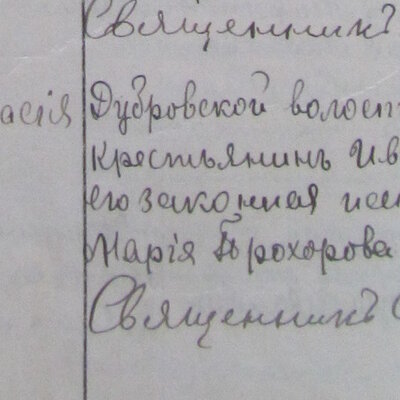 Священникъ
асiя Дубровской волост
Крестьянинъ Ив
его законная
Марiя Прохорова
Священникъ С